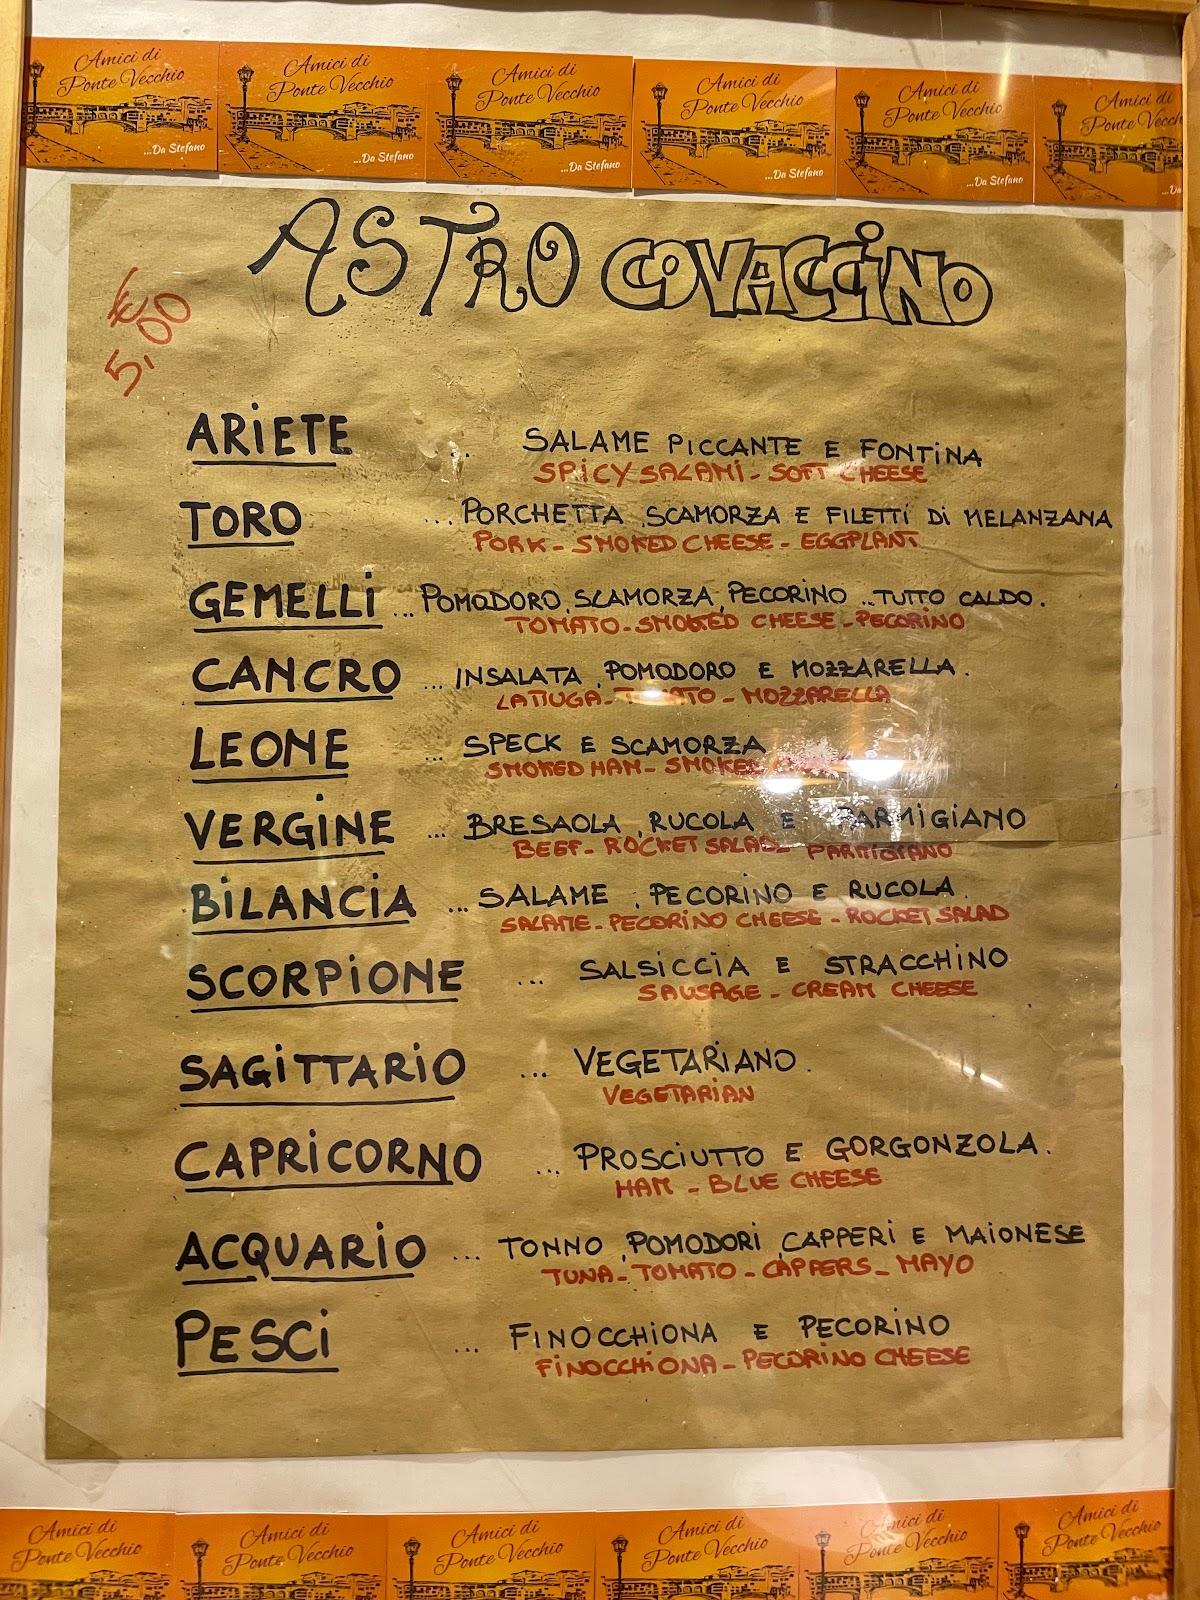 Amici di
Ponte Vecchio
...Da Stefano
Amici di
Ponte Vecchio
...Da Stefano
Amici di
Ponte Vecchio
...Da Stefano
Amici di
Ponte Vecchio
...Da Stefano
Amici di
Ponte Vecchio
...Da Stefano
Amici di
Ponte Vecch
...Da
ASTRO COVACCINO
€ 5,00
ARIETE . SALAME PICCANTE E FONTINA
SPICY SALAMI - SOFT CHEESE
TORO ... PORCHETTA, SCAMORZA E FILETTI DI MELANZANA
PORK - SMOKED CHEESE - EGGPLANT
GEMELLI ... POMODORO, SCAMORZA, PECORINO ... TUTTO CALDO.
TOMATO - SMOKED CHEESE - PECORINO
CANCRO ... INSALATA, POMODORO E MOZZARELLA.
LATTUGA - TOMATO - MOZZARELLA
LEONE ... SPECK E SCAMORZA
SMOKED HAM - SMOKED
VERGINE ... BRESAOLA, RUCOLA E PARMIGIANO
BEEF - ROCKET SALAD - PARMIGIANO
BILANCIA ... SALAME, PECORINO E RUCOLA
SALAME - PECORINO CHEESE - ROCKET SALAD
SCORPIONE ... SALSICCIA E STRACCHINO
SAUSAGE - CREAM CHEESE
SAGITTARIO ... VEGETARIANO.
VEGETARIAN
CAPRICORNO ... PROSCIUTTO E GORGONZOLA.
HAM - BLUE CHEESE
ACQUARIO ... TONNO, POMODORI, CAPPERI E MAIONESE
TUNA - TOMATO - CAPPERS - MAYO
PESCI ... FINOCCHIONA E PECORINO
FINOCCHIONA - PECORINO CHEESE
Amici di
Ponte Vecchio
Amici di
Ponte Vecchio
Amici di
Ponte Vecchio
Amici di
Ponte Vecchio
Amici di
Ponte Vecchio
Amici di
Ponte Vecchio